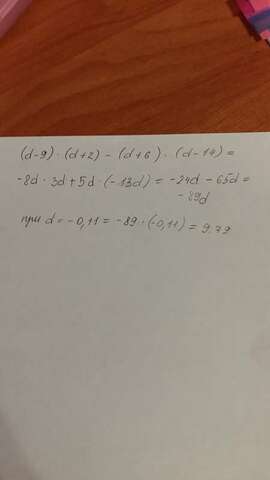 (d-9)·(d+2)-(d+6)·(d-14)=
-8d·3d+5d·(-13d)=-24d-65d=
-89d
при d=-0,11=-89·(-0,11)=9.79